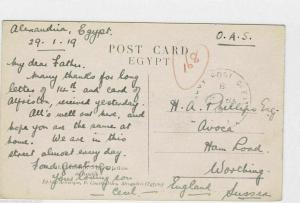 Alexandria, Egypt.
29.1.19
O.A.S.
POST CARD
EGYPT
My dear Father,
Many thanks for long
letter of 14th and card of
received yesterday.
All's well out here, and
hope you are the same at
home. We are in this
street almost every day.
Fond greetings
Your loving son
Cecil
H. A. Phillips Esq
"Avoca"
Ham Road
Worthing
England Sussex